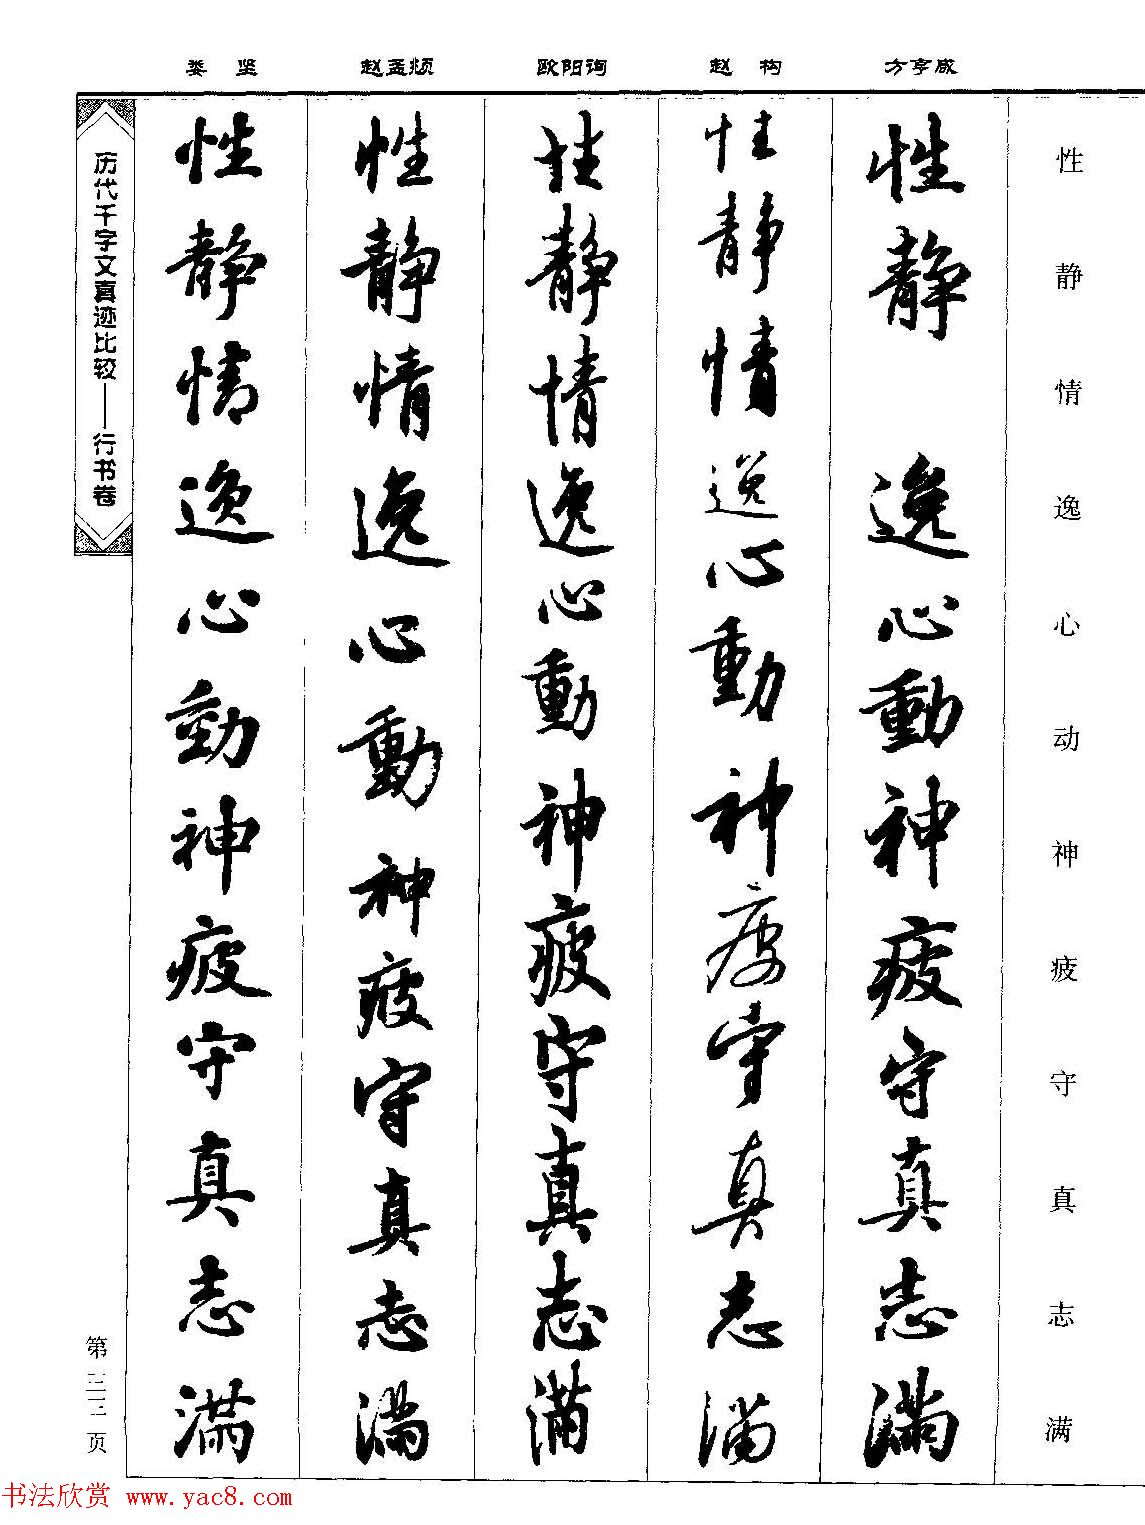 娄坚 赵孟頫 欧阳询 赵构 方亨咸
性静情逸心动神疲守真志满
性静逸心動神疲守真志满
性静情逸心動神疲守真志满
性静情逸心動神疲守真志满
性静情逸心動神疲守真志满
性静情逸心動神疲守真志满
历代千字文真迹比较——行书卷
第三三页
书法欣赏 www.yac8.com